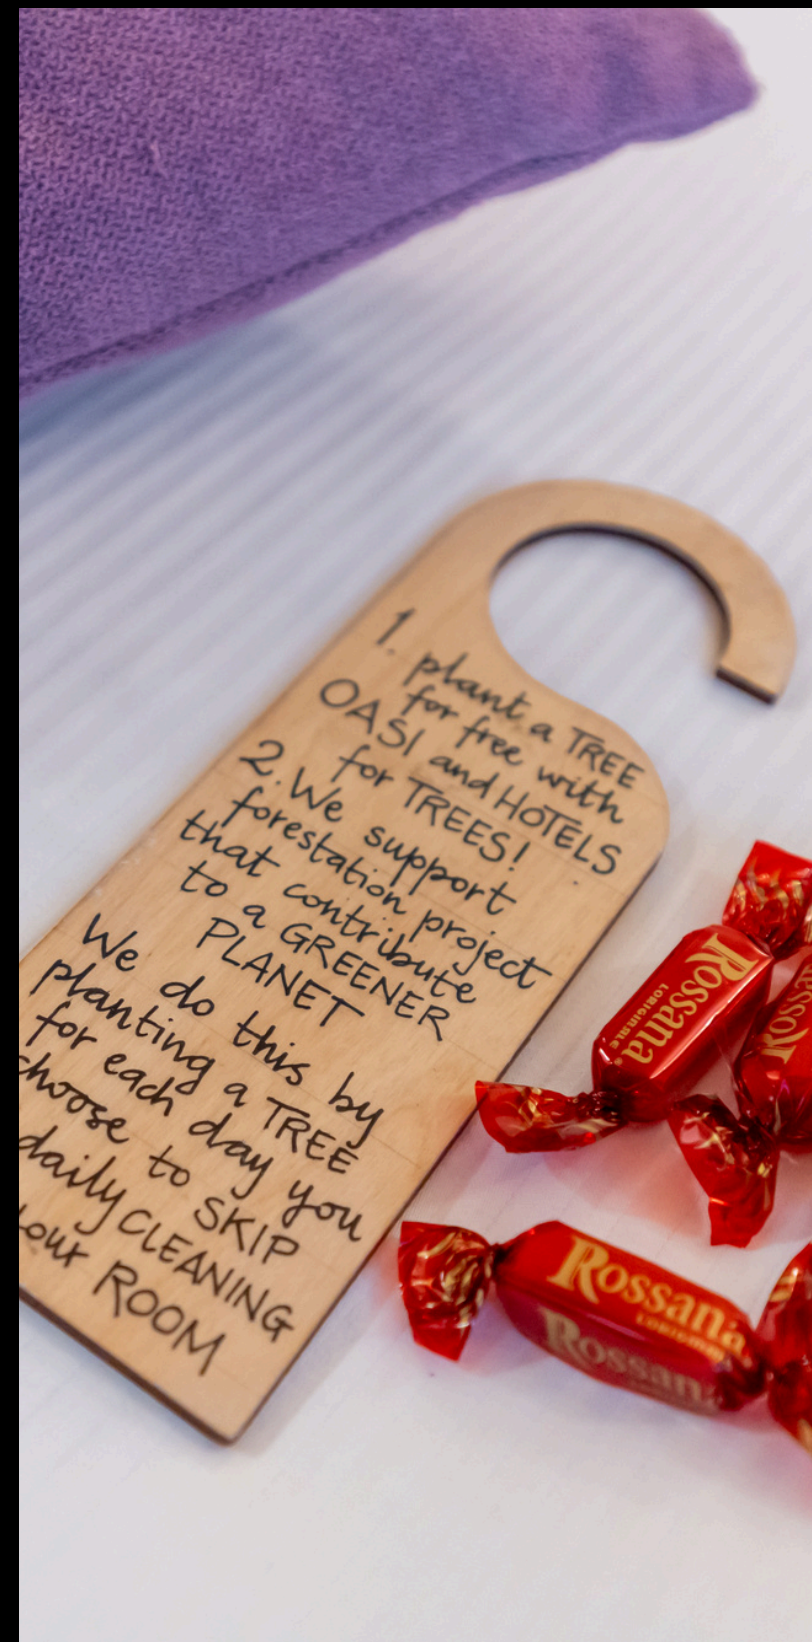 1. plant a TREE
for free with
OASI and HOTELS
for TREES!
2. We support
forestation project
that contribute
to a GREENER
PLANET
We do this by
planting a TREE
for each day you
choose to SKIP
daily CLEANING
your ROOM
Rossana
L'ORIGINALE
Rossana
Rossana
L'ORIGINALE
Rossana